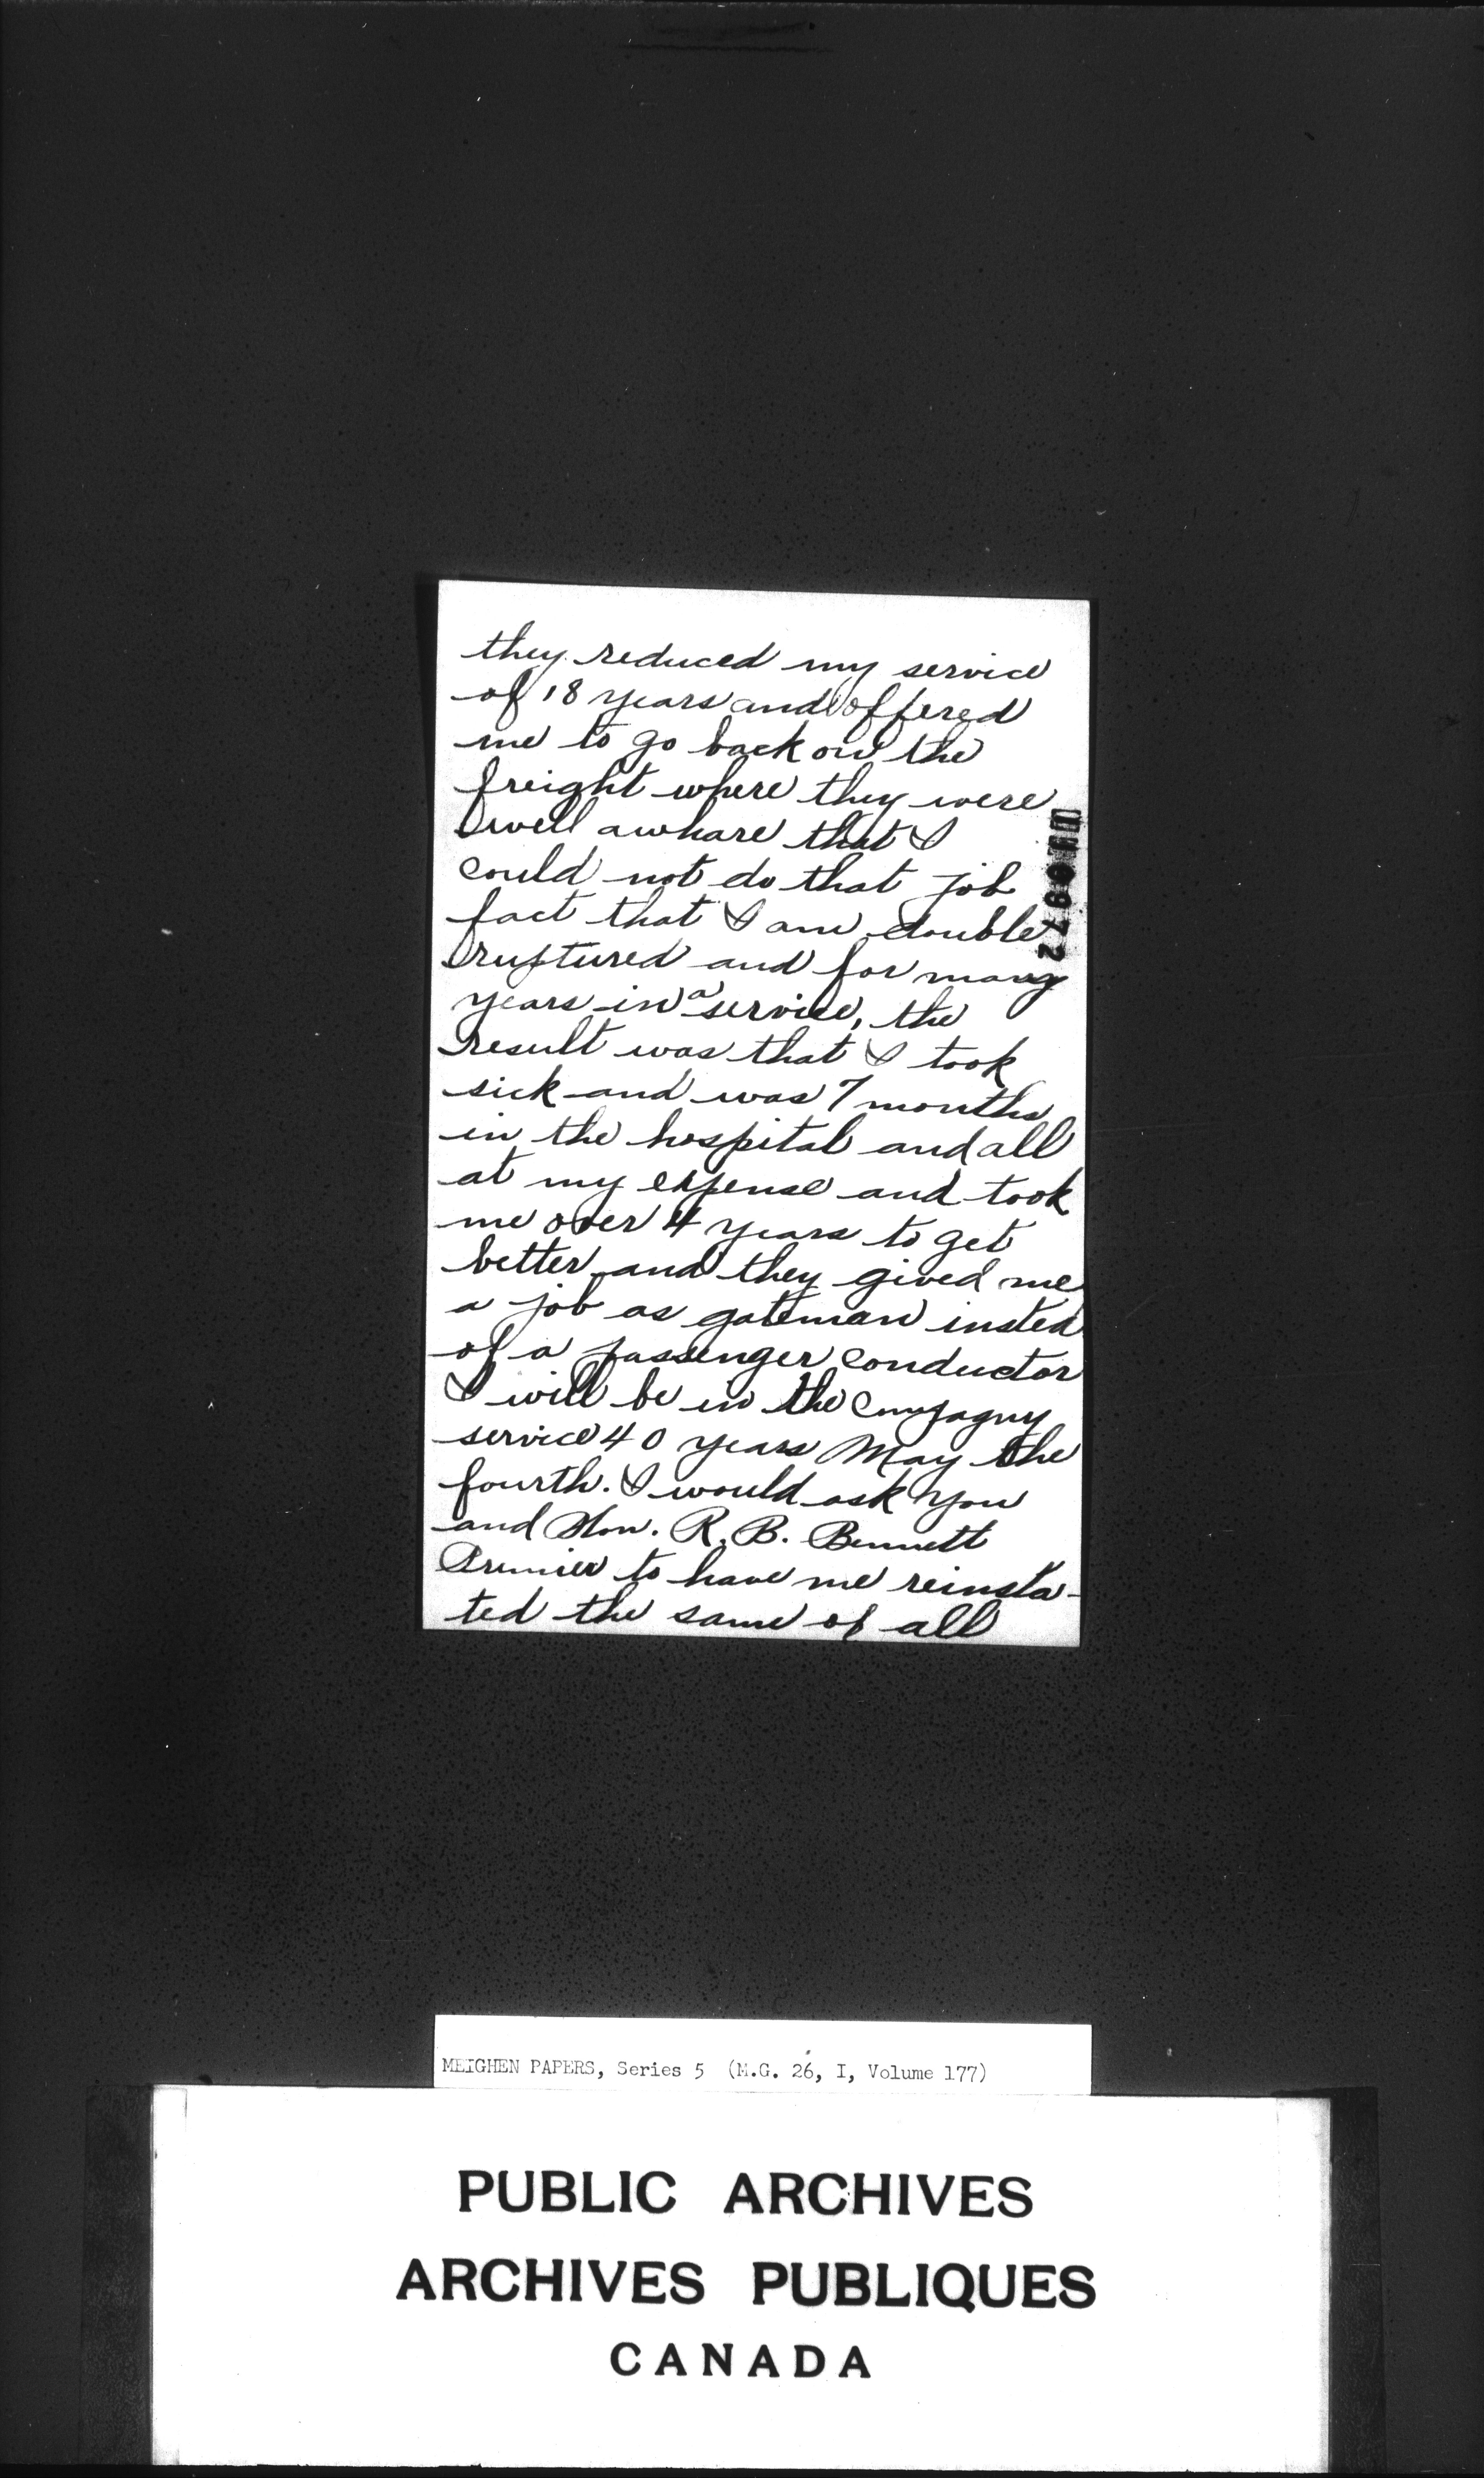 they reduced my service
of 18 years and offered
me to go back on the
freight where they were
well awhare that I
could not do that job
fact that I am double
ruptured and for many
years in a service, the
result was that I took
sick and was 7 months
in the hospital and all
at my expense and took
me over 4 years to get
better and they gived me
a job as gateman insted
of a passenger conductor
I will be in the Compagny
service 40 years May the
fourth. I would ask you
and Hon. R. B. Bennett
Premier to have me reinsta-
ted the same of all
MEIGHEN PAPERS, Series 5 (M.G. 26, I, Volume 177)
PUBLIC ARCHIVES
ARCHIVES PUBLIQUES
CANADA